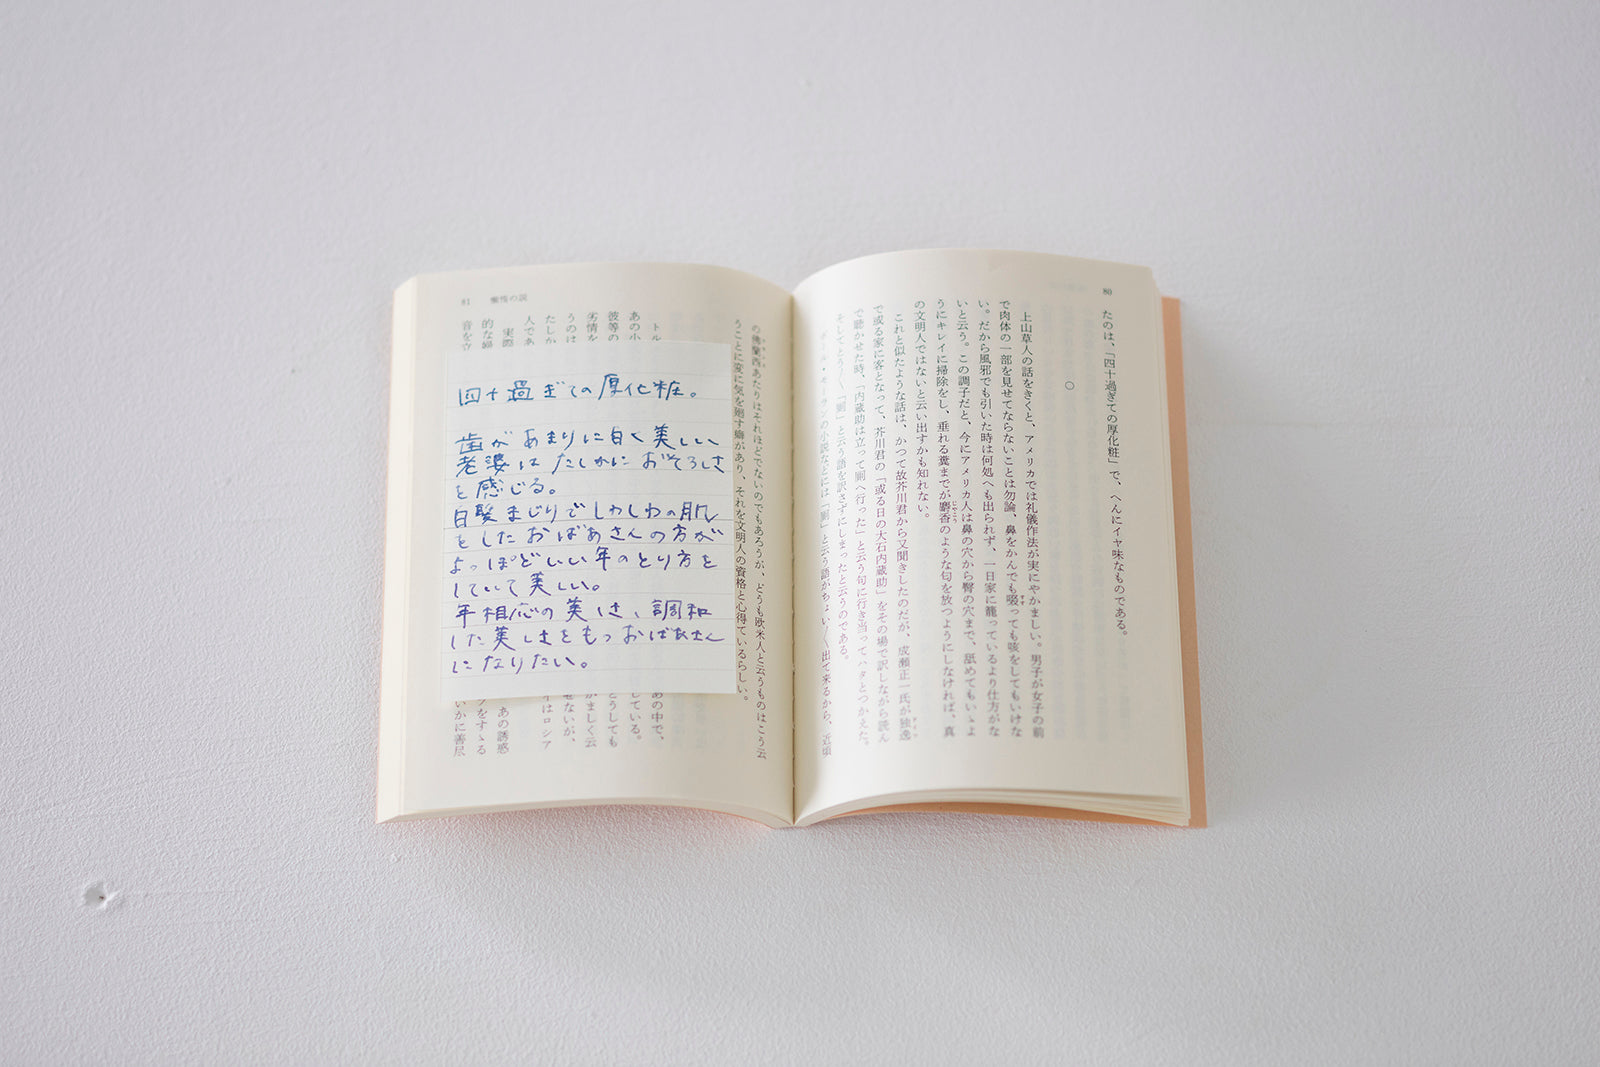 80
たのは、「四十過ぎての厚化粧」で、へんにイヤ味なものである。
○
上山草人の話をきくと、アメリカでは礼儀作法が実にやかましい。男子が女子の前
で肉体の一部を見せてならないことは勿論、鼻をかんでも啜っても咳をしてもいけな
い。だから風邪でも引いた時は何処へも出られず、一日家に籠っているより仕方がな
いと云う。この調子だと、今にアメリカ人は鼻の穴から臀の穴まで、舐めてもいゝよ
うにキレイに掃除をし、垂れる糞までが麝香のような匂を放つようにしなければ、真
の文明人ではないと云い出すかも知れない。
これと似たような話は、かつて故芥川君から又聞きしたのだが、成瀬正一氏が独逸
で或る家に客となって、芥川君の「或る日の大石内蔵助」をその場で訳しながら読ん
で聴かせた時、「内蔵助は立って厠へ行った」と云う句に行き当ってハタとつかえた。
そしてとう〳〵「厠」と云う語を訳さずにしまったと云うのである。
ポール・モーランの小説などには「厠」と云う語がちょい〳〵出て来るから、近頃
81 懶惰の説
の佛蘭西あたりはそれほどでないのでもあろうが、どうも欧米人と云うものはこう云
うことに変に気を廻す癖があり、それを文明人の資格と心得ているらしい。
トル
あの小
彼等の
劣情を
うのは
たしか
人であ
実際
的な婦
音を立
あの中で、
している。
とうしても
がましく云
せないが、
イはロシア
あの誘惑
をすゝる
いかに善尽
四十過ぎての厚化粧。
歯があまりに白く美しい
老婆はたしかにおそろしさ
を感じる。
白髪まじりでしわしわの肌
をしたおばあさんの方が
よっぽどいい年のとり方を
していて美しい。
年相応の美しさ、調和
した美しさをもつおばあさん
になりたい。